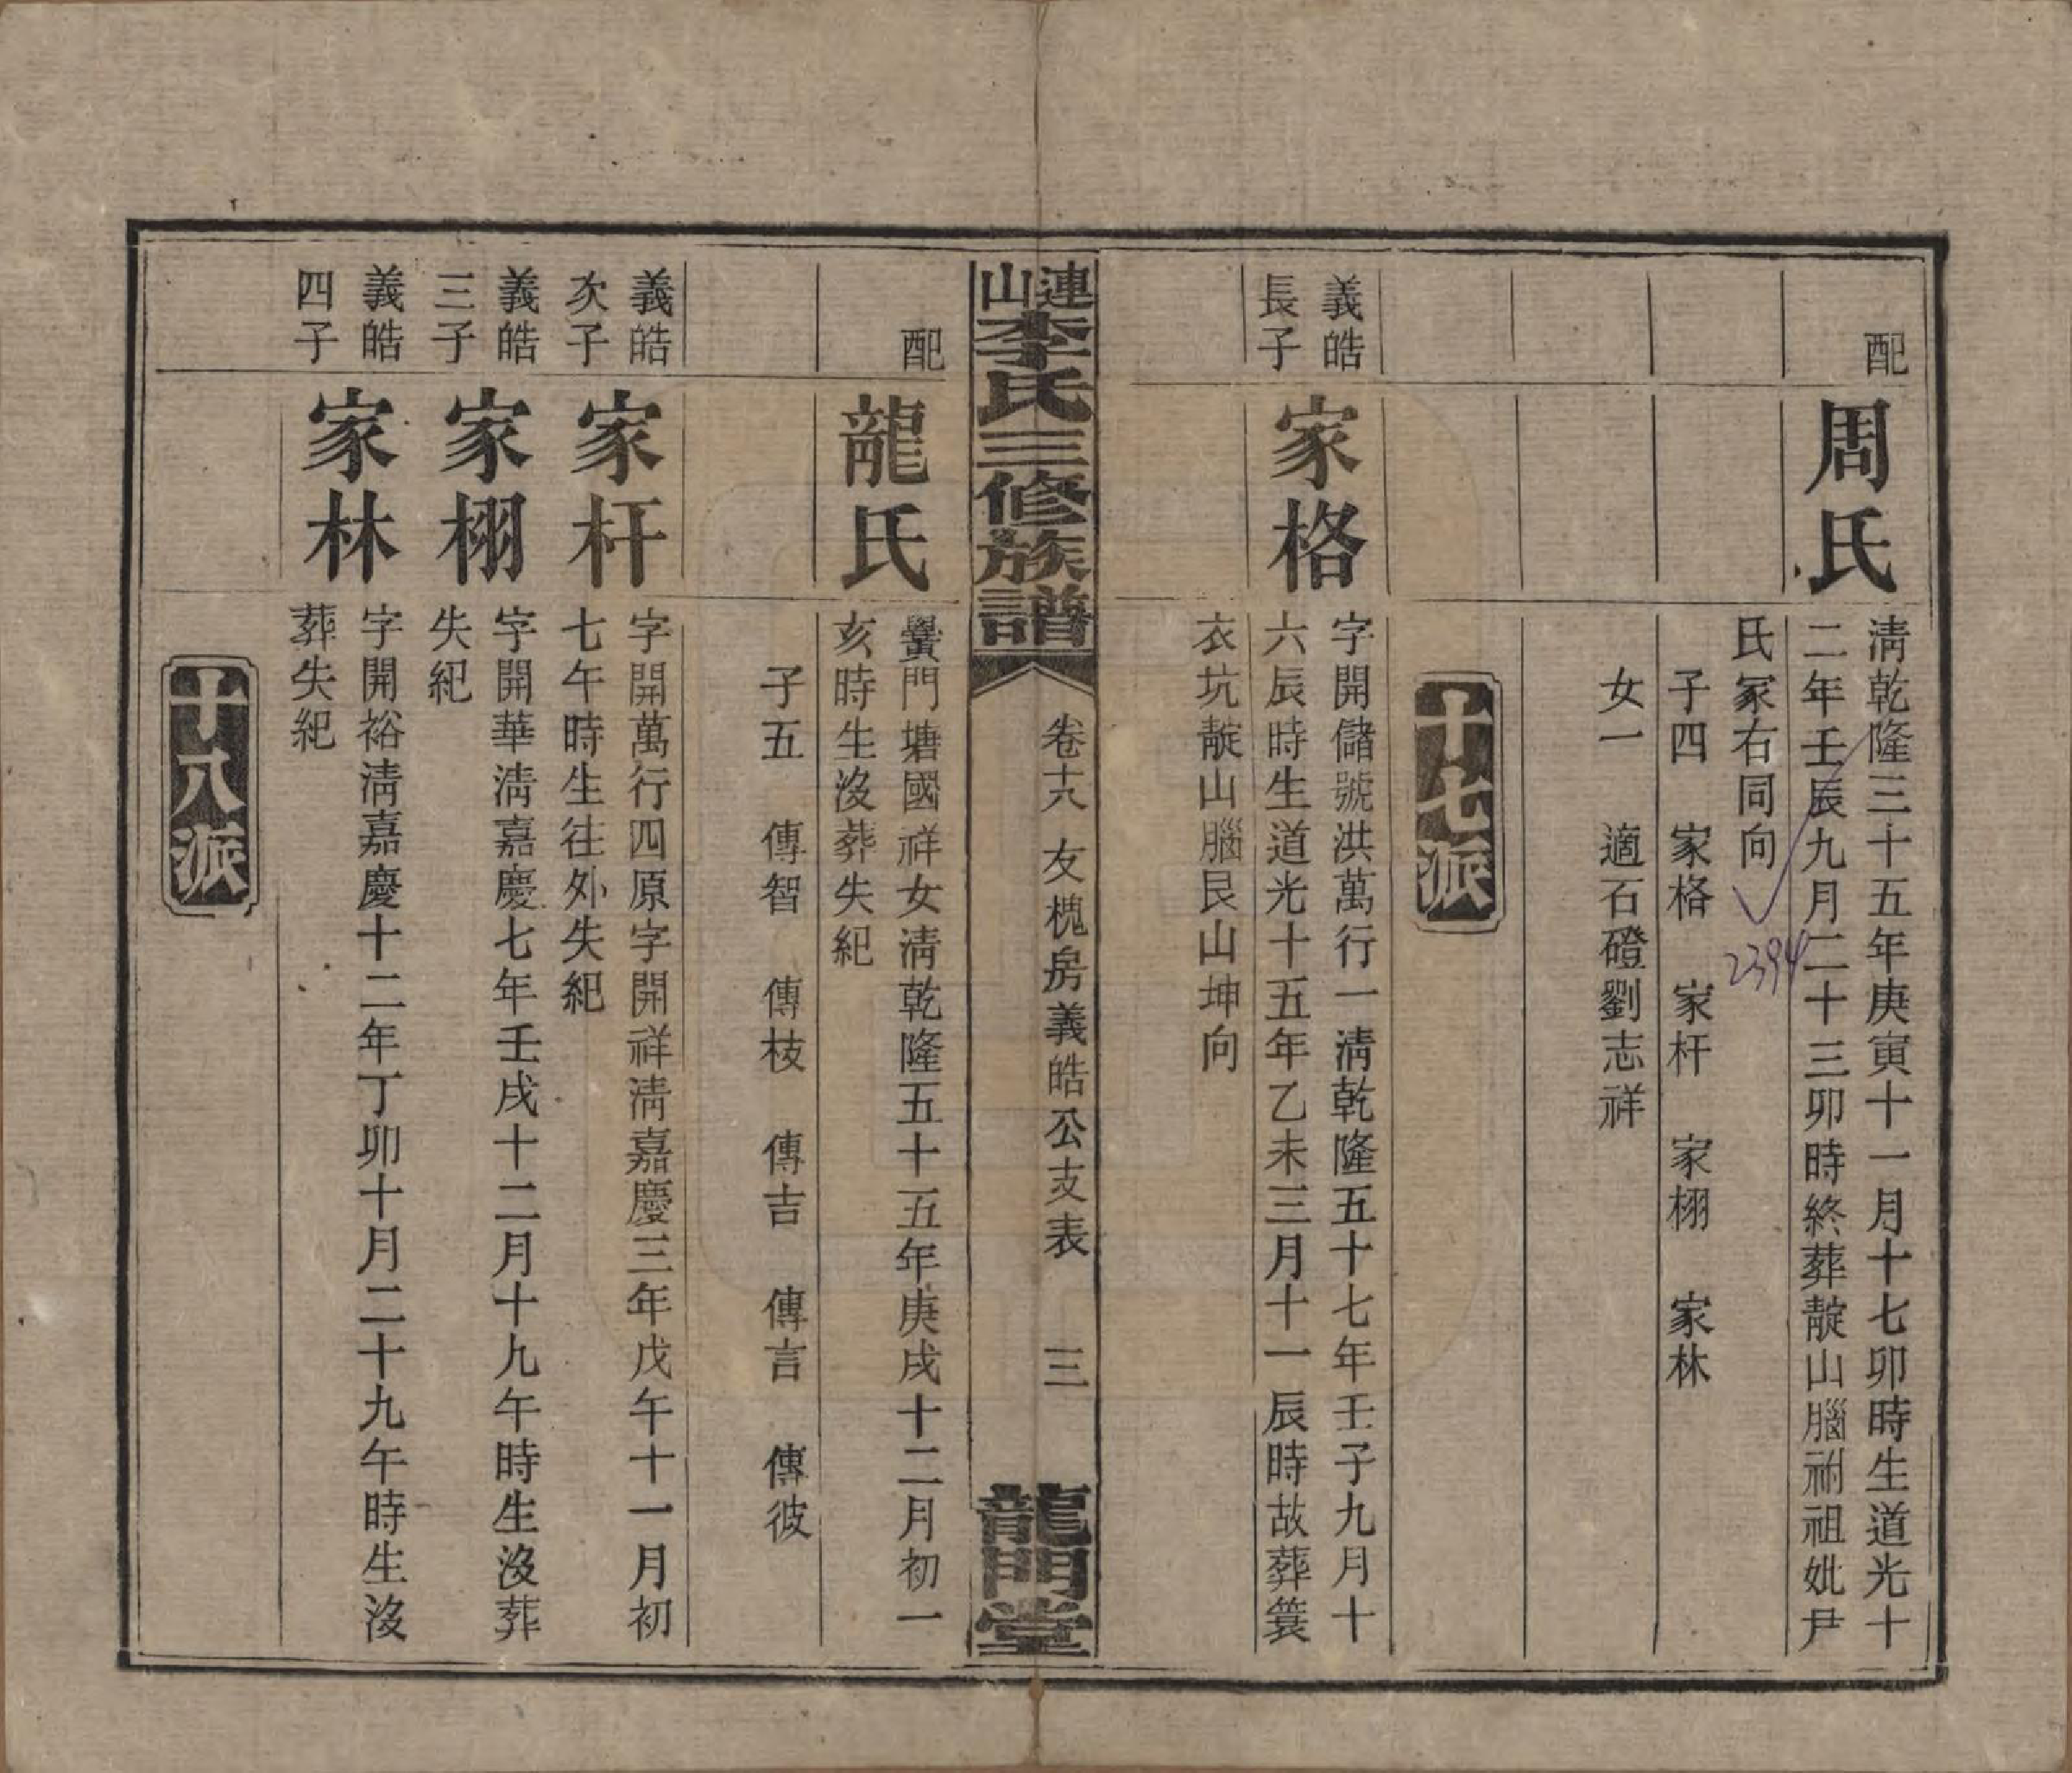 配
周氏
淸乾隆三十五年庚寅十一月十七卯時生道光十
二年壬辰九月二十三卯時終葬靛山腦祔祖妣尹
氏冢右同向
2394
子四　家格　家杆　家栩　家林
女一　適石磴劉志祥
十七派
義皓
長子
家格
字開儲號洪萬行一淸乾隆五十七年壬子九月十
六辰時生道光十五年乙未三月十一辰時故葬簑
衣坑靛山腦艮山坤向
連山李氏三修族譜
卷十八　友槐房義皓公支表　三
龍門堂
配
龍氏
黌門塘國祥女淸乾隆五十五年庚戌十二月初一
亥時生沒葬失紀
子五　傳智　傳枝　傳吉　傳言　傳彼
義皓
次子
家杆
字開萬行四原字開祥淸嘉慶三年戊午十一月初
七午時生往外失紀
義皓
三子
家栩
字開華淸嘉慶七年壬戌十二月十九午時生沒葬
失紀
義皓
四子
家林
字開裕淸嘉慶十二年丁卯十月二十九午時生沒
葬失紀
十八派